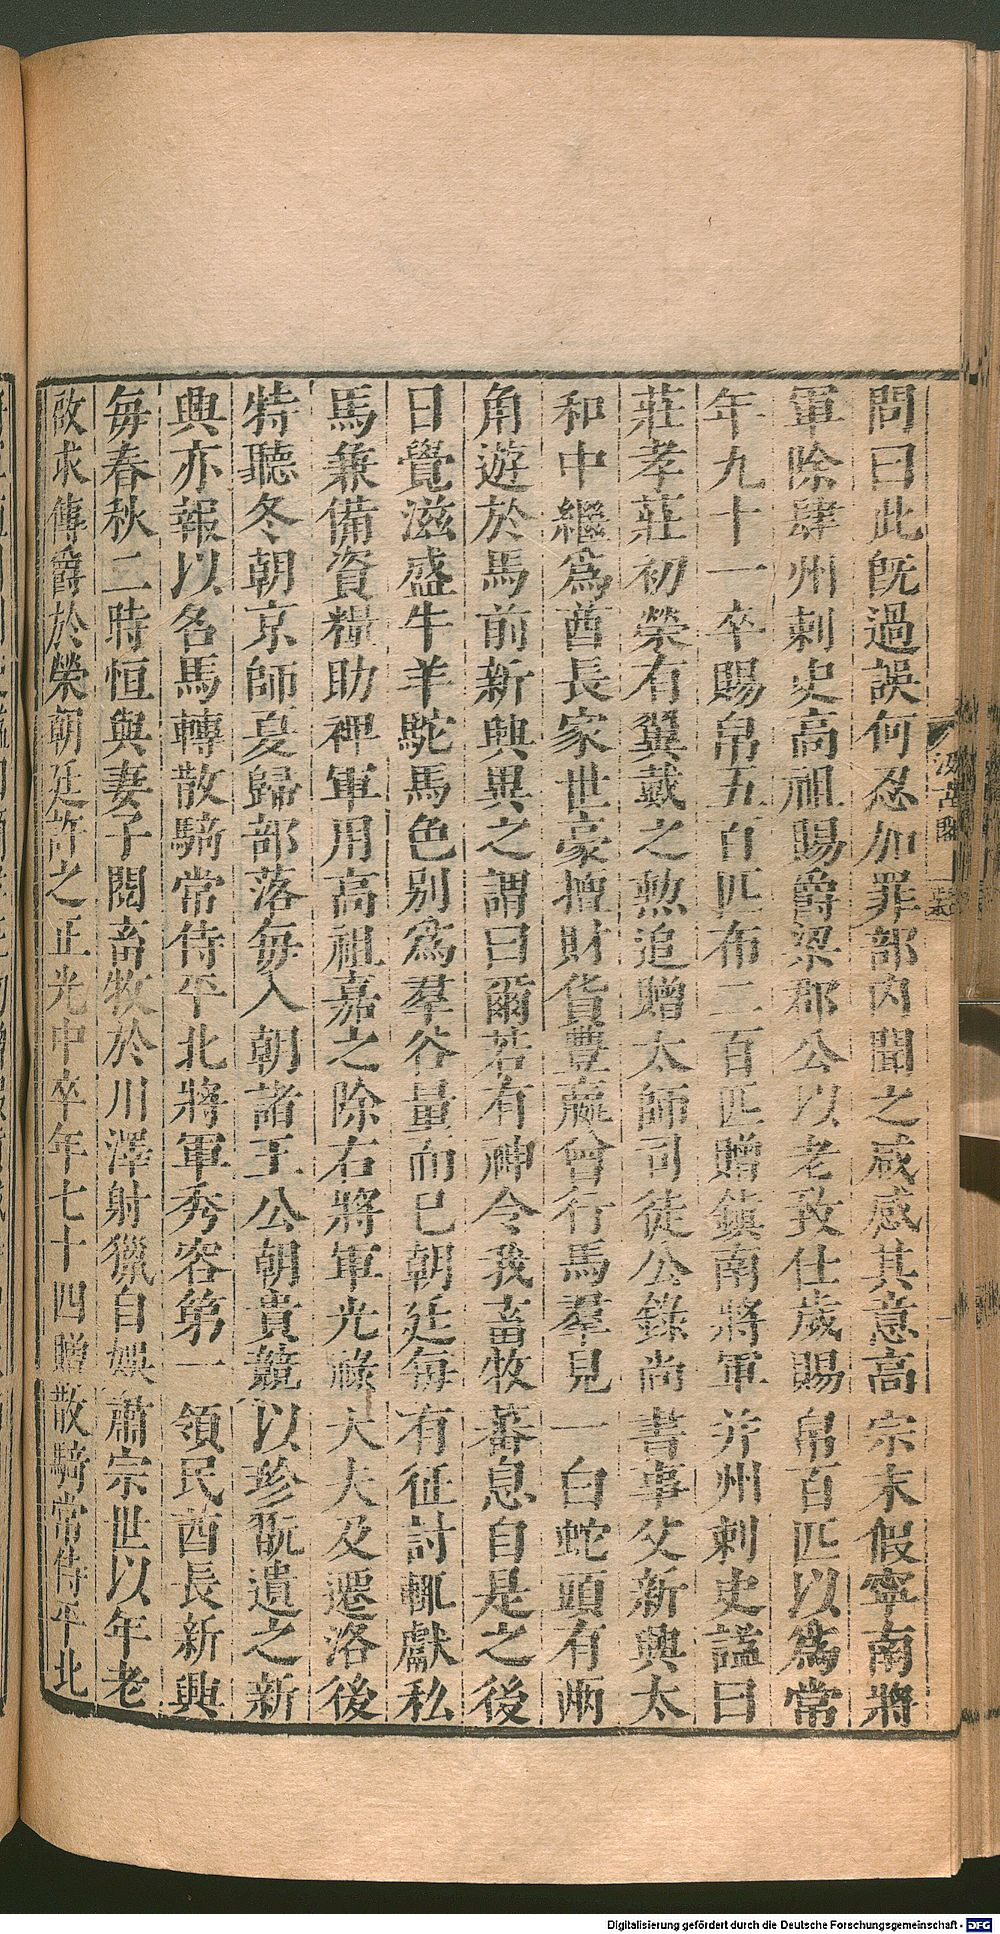 問曰此旣過誤何忍加罪部內聞之咸感其意高宗末假寧南將
軍除肆州刺史高祖賜爵梁郡公以老致仕歲賜帛百匹以爲常
年九十一卒賜帛五百匹布二百匹贈鎮南將軍并州刺史謚曰
莊孝莊初榮有翼戴之勲追贈太師司徒公錄尚書事父新興太
和中繼爲酋長家世豪擅財貨豐贏曾行馬羣見一白蛇頭有兩
角遊於馬前新興異之謂曰爾若有神令我畜牧蕃息自是之後
日覺滋盛牛羊駝馬色別爲羣谷量而已朝廷每有征討輒獻私
馬兼備資糧助裨軍用高祖嘉之除右將軍光祿大夫及遷洛後
特聽冬朝京師夏歸部落每入朝諸王公朝貴競以珍翫遺之新
興亦報以名馬轉散騎常侍平北將軍秀容第一領民酋長新興
每春秋二時恒與妻子閱畜牧於川澤射獵自娛肅宗世以年老
啟求傳爵於榮朝廷許之正光中卒年七十四贈散騎常侍平北
汲古閣
Digitalisierung gefördert durch die Deutsche Forschungsgemeinschaft - DFG